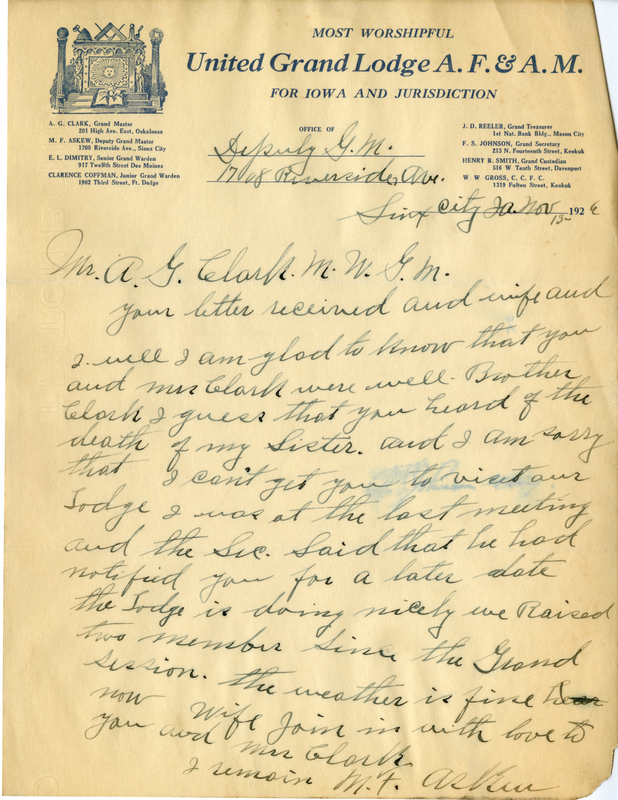 MOST WORSHIPFUL
United Grand Lodge A. F. & A. M.
FOR IOWA AND JURISDICTION
A. G. CLARK, Grand Master
203 High Ave. East, Oskaloosa
M. F. ASKEW, Deputy Grand Master
1708 Riverside Ave., Sioux City
E. L. DIMITRY, Senior Grand Warden
917 Twelfth Street Des Moines
CLARENCE COFFMAN, Junior Grand Warden
1902 Third Street, Ft. Dodge
J. D. REELER, Grand Treasurer
1st Nat. Bank Bldg., Mason City
F. S. JOHNSON, Grand Secretary
213 N. Fourteenth Street, Keokuk
HENRY B. SMITH, Grand Custodian
516 W Tenth Street, Davenport
W. W GROSS, C. C. F. C.
1319 Fulton Street, Keokuk
OFFICE OF
Deputy G. M.
1708 Riverside Ave.
Sioux City Ia. Nov 15 1926
Mr. A. G. Clark. M. W. G. M.
your letter received and wife and
I. well I am glad to know that you
and mrs Clark were well. Brother
Clark I guess that you heard of the
death of my Sister. and I am sorry
that I can't get you to visit our
Lodge I was at the last meeting
and the Sec. Said that he had
notified you for a later date
the Lodge is doing nicely we Raised
two member Since the Grand
session. the weather is fine
now Wife Join in with love to
you and Mrs Clark.
I remain M. F. Askew